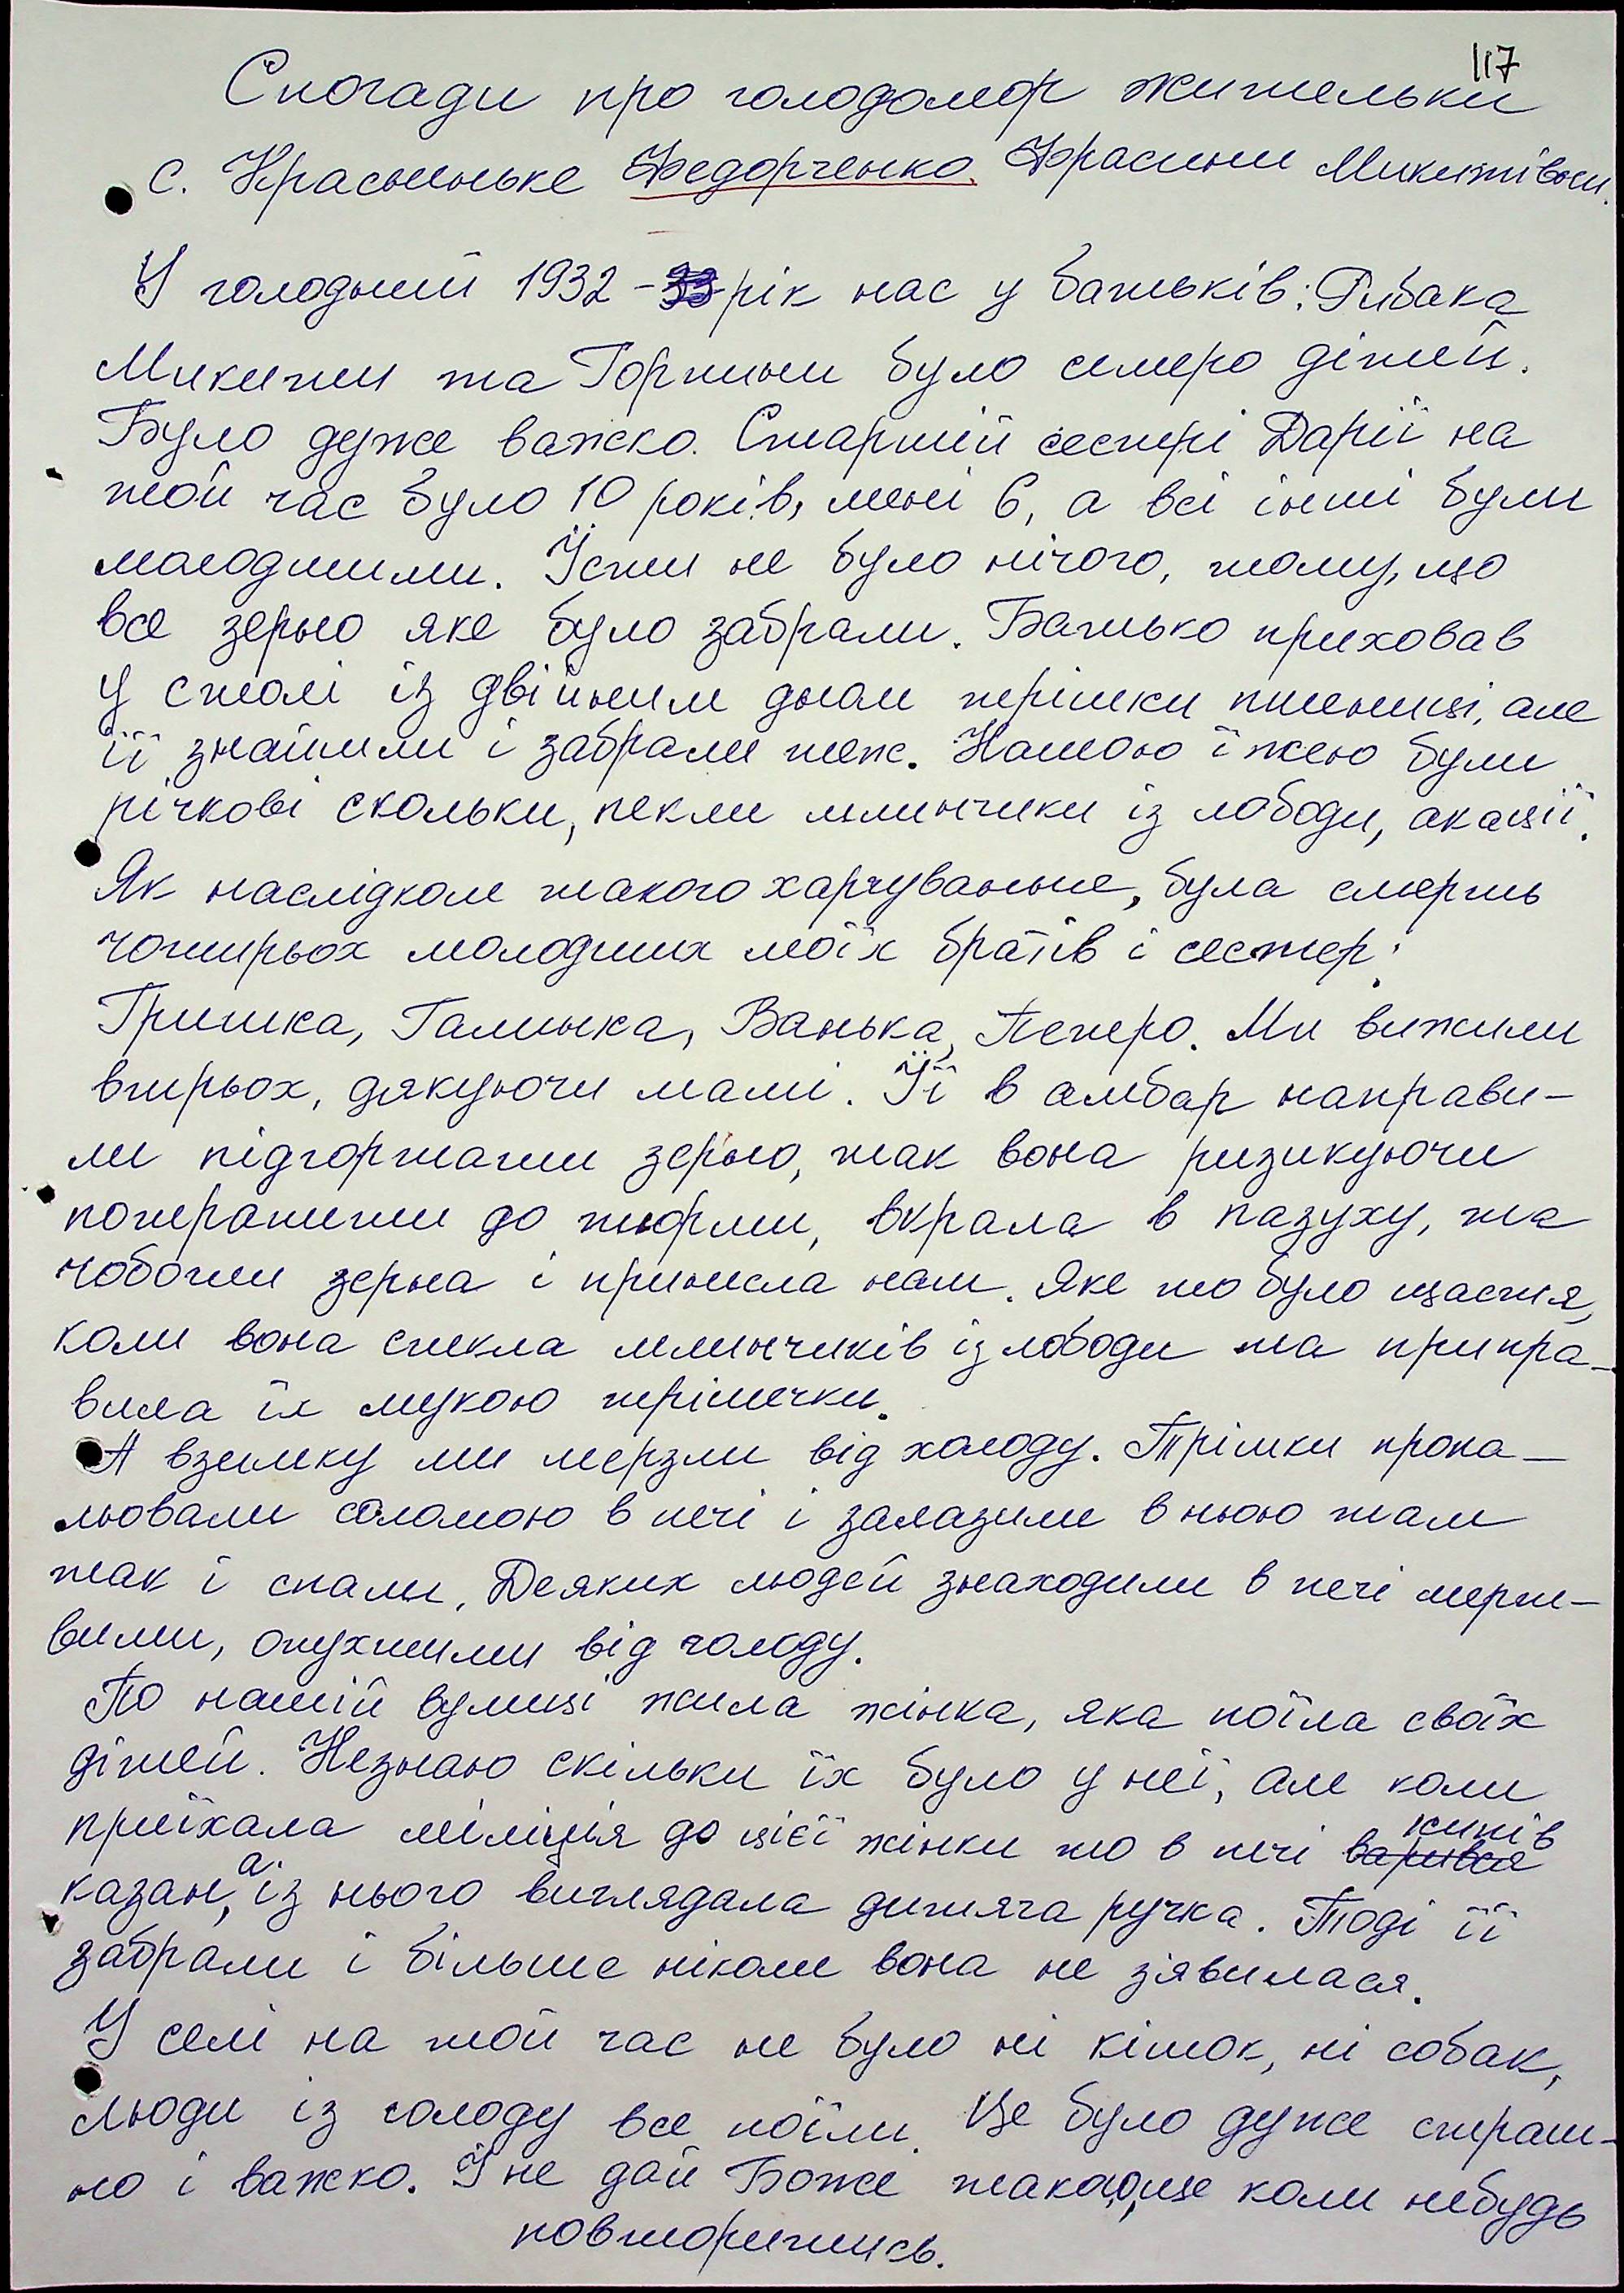 117
Спогади про голодомор жительки
с. Красненьке Федорченко Фросини Микитівни.
У голодний 1932-33 рік нас у батьків: Рибака
Микити та Горпини було семеро дітей.
Було дуже важко. Старшій сестрі Дарії на
той час було 10 років, мені 6, а всі інші були
молодшими. Їсти не було нічого, тому, що
все зерно яке було забрали. Батько приховав
у столі із двійним дном трішки пшениці, але
її знайшли і забрали теж. Нашою їжею були
річкові скольки, пекли млинчики із лободи, акації.
Як наслідком такого харчування, була смерть
чотирьох молодших моїх братів і сестер:
Гришка, Галинка, Ванька, Петро. Ми вижили
втрьох, дякуючи мамі. Її в амбар направи-
ли підгортати зерно, так вона ризикуючи
потрапити до тюрми, вкрала в пазуху, та
чоботи зерна і принесла нам. Яке то було щастя,
коли вона спекла млинчиків із лободи та припра-
вила їх мукою трішечки.
А взимку ми мерзли від холоду. Трішки пропа-
лювали соломою в печі і залазили в нюю там
так і спали. Деяких людей знаходили в печі мерт-
вими, опухшими від голоду.
По нашій вулиці жила жінка, яка поїла своїх
дітей. Незнаю скільки їх було у неї, але коли
приїхала міліція до цієї жінки то в печі варився кипів
казан, а із нього виглядала дитяча ручка. Тоді її
забрали і більше ніколи вона не зявилася.
У селі на той час не було ні кішок, ні собак,
люди із голоду все поїли. Це було дуже страш-
но і важко. І не дай Боже такому, ще коли небудь
повторитись.